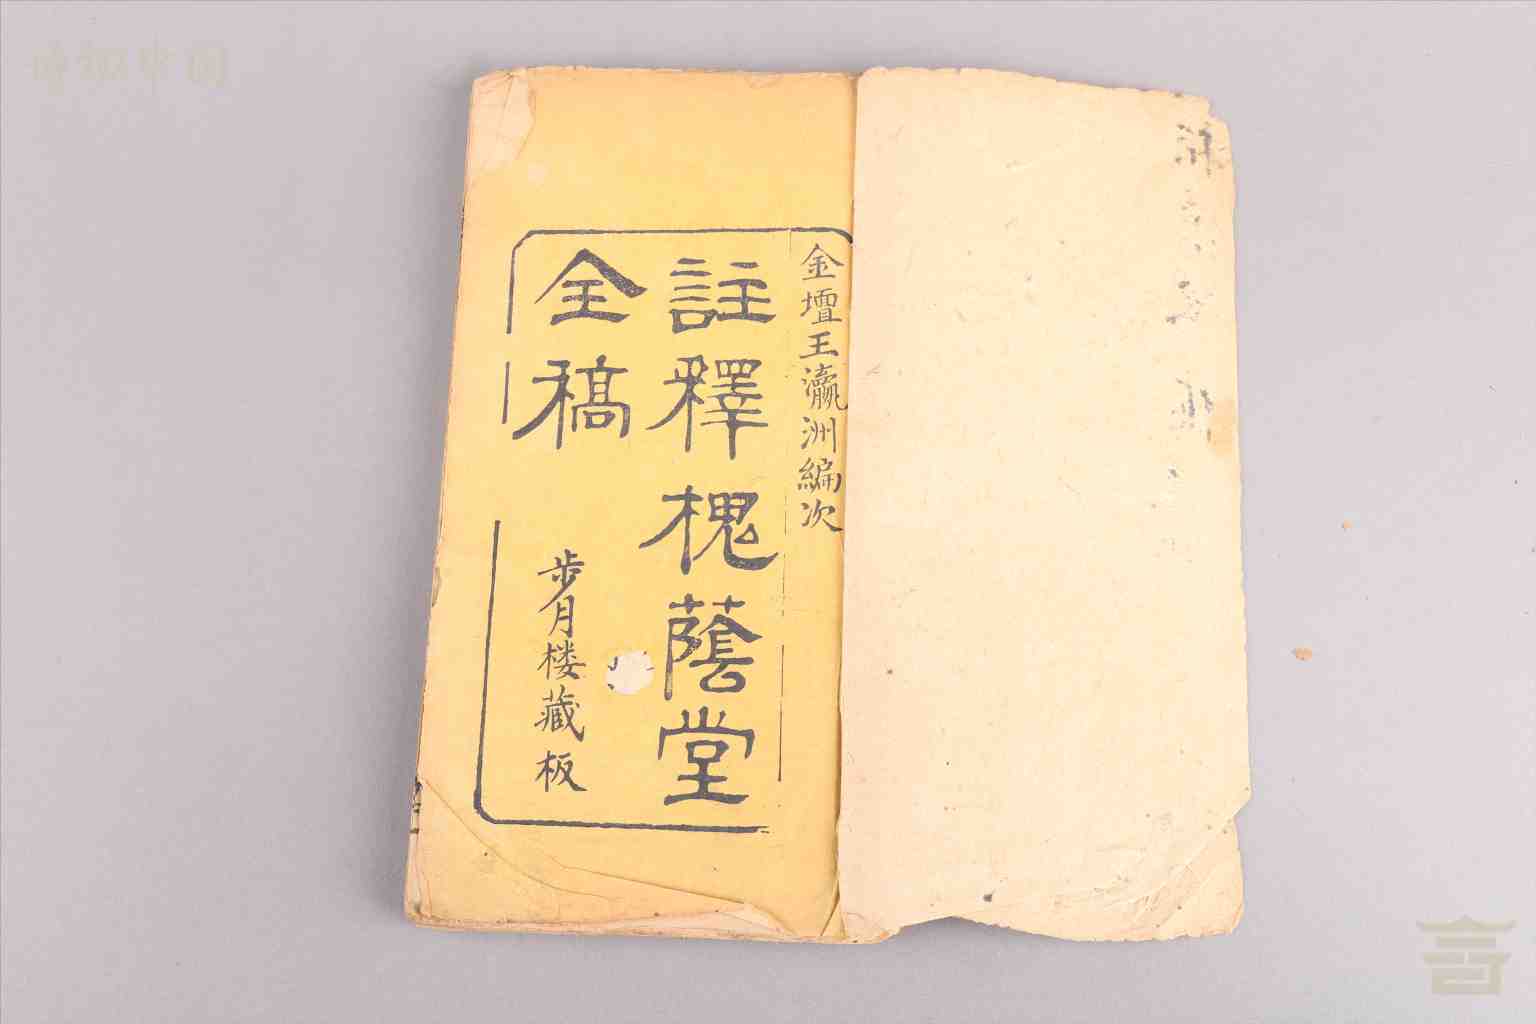 金壇王瀛洲編次
註釋槐蔭堂
全稿
步月楼藏板